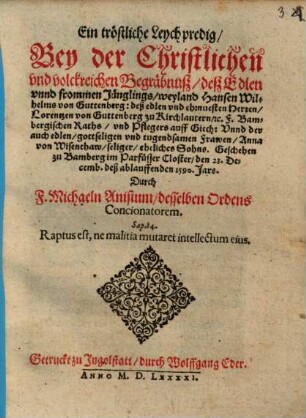 Ein tröstliche Leych predig/
Bey der Christlichen
vnd volckreichen Begräbnuß/ deß Edlen
vnnd frommen Jünglings/ weyland Hansen Wil-
helms von Guttenberg: deß edlen vnd ehrnuesten Herren/
Lorentzen von Guttenberg zu Kirchlautern/ ꝛc. F. Bam-
bergischen Raths/ vnd Pflegers auff Giech: Vnnd der
auch edlen/ gottseligen vnd tugendsamen Frawen/ Anna
von Wisenthaw/ seliger/ eheliches Sohns. Geschehen
zu Bamberg im Parfüsser Closter/ den 23. De-
cemb. deß ablauffenden 1590. Jars.
Durch
F. Michaeln Anisium/ desselben Ordens
Concionatorem.
Sap. 4.
Raptus est, ne malitia mutaret intellectum eius.
Getruckt zu Jngolstatt/ durch Wolffgang Eder.
ANNO M. D. LXXXXI.